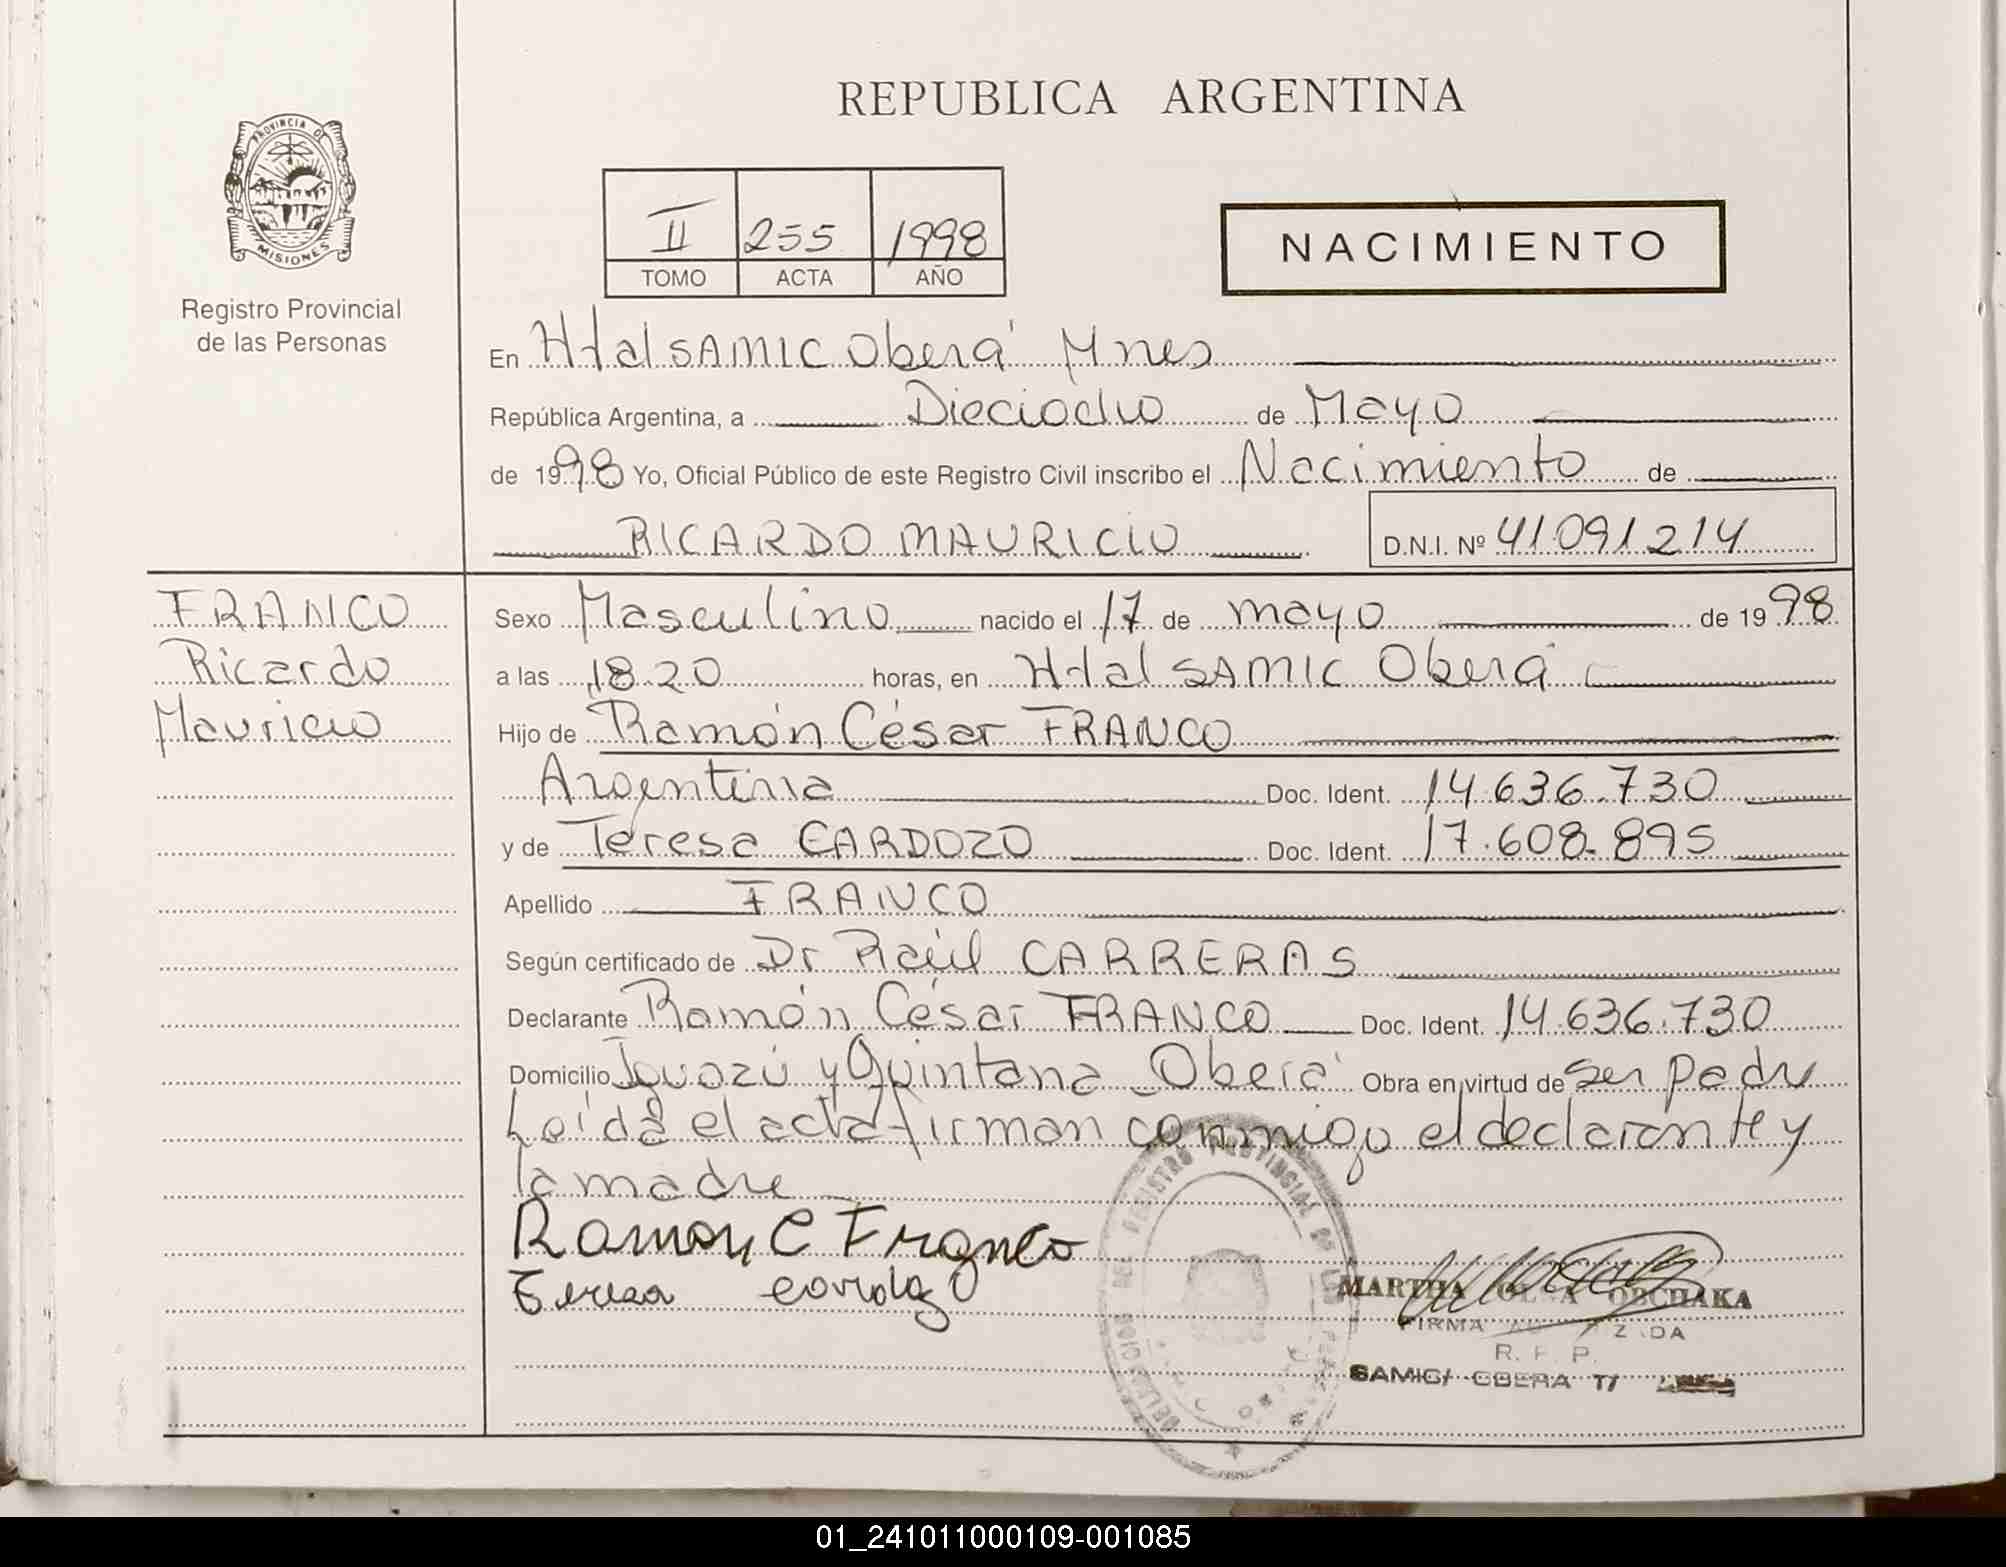 REPUBLICA ARGENTINA
PROVINCIA DE
MISIONES
Registro Provincial
de las Personas
II 255 1998
TOMO ACTA AÑO
NACIMIENTO
En Htal SAMIC Oberá Mnes
República Argentina, a Dieciocho de Mayo
de 1998 Yo, Oficial Público de este Registro Civil inscribo el Nacimiento de
RICARDO MAURICIO D.N.I. Nº 41091214
FRANCO
Ricardo
Mauricio
Sexo Masculino nacido el 17 de mayo de 1998
a las 18.20 horas, en Htal SAMIC Oberá
Hijo de Ramón César FRANCO
Argentina Doc. Ident. 14.636.730
y de Teresa CARDOZO Doc. Ident. 17.608.895
Apellido FRANCO
Según certificado de Dr Raúl CARRERAS
Declarante Ramón César FRANCO Doc. Ident. 14.636.730
Domicilio Iguazú y Quintana Oberá Obra en virtud de ser padre
Leída el acta firman conmigo el declarante y
la madre
Ramon C Franco
Teresa cardozo
MARTHA OLGA OBCHAKA
FIRMA AUTORIZADA
R. P. P.
SAMIC/ OBERA
01_241011000109-001085